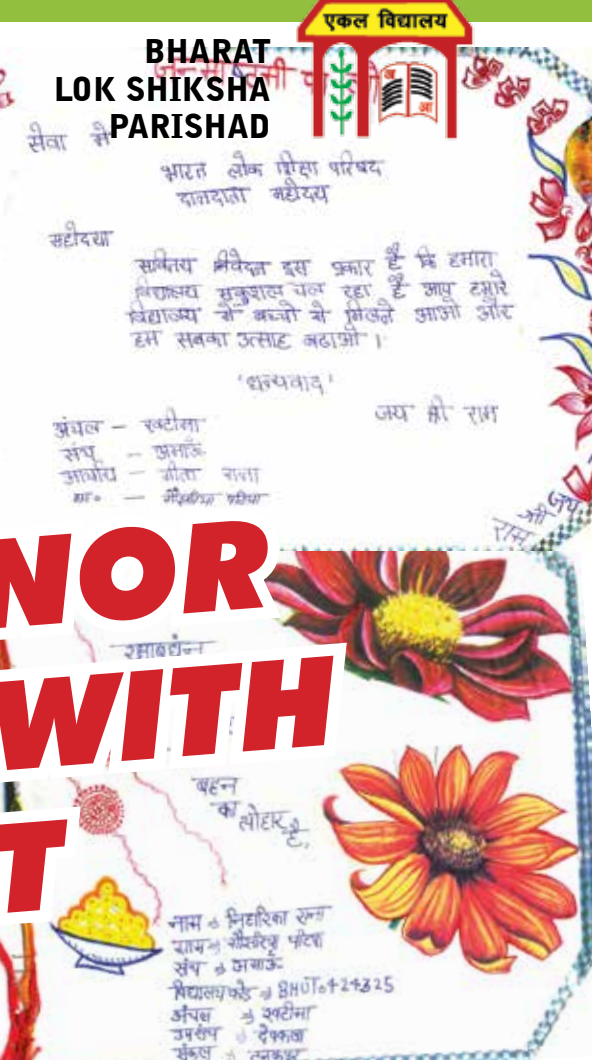 एकल विद्यालय
अ
आ
BHARAT
LOK SHIKSHA
PARISHAD
सेवा में
भारत लोक शिक्षा परिषद
दानदाता महोदय
महोदया
सविनय निवेदन इस प्रकार है कि हमारा
विद्यालय सकुशल चल रहा है आप हमारे
विद्यालय में बच्चों से मिलने आओ और
हम सबका उत्साह बढाओ ।
'धन्यवाद'
जय श्री राम
अंचल – खटीमा
संच – अमाऊँ
आचार्य – गीता राना
जय
श्री
राम
NOR
WITH
T
रक्षाबंधन
बहन
का
त्योहार
है,
नाम → निहारिका राना
ग्राम →
संच → अमाऊ
विद्यालय कोड → BHUT0424325
अंचल → खटीमा
उपसंच →
संकुल →